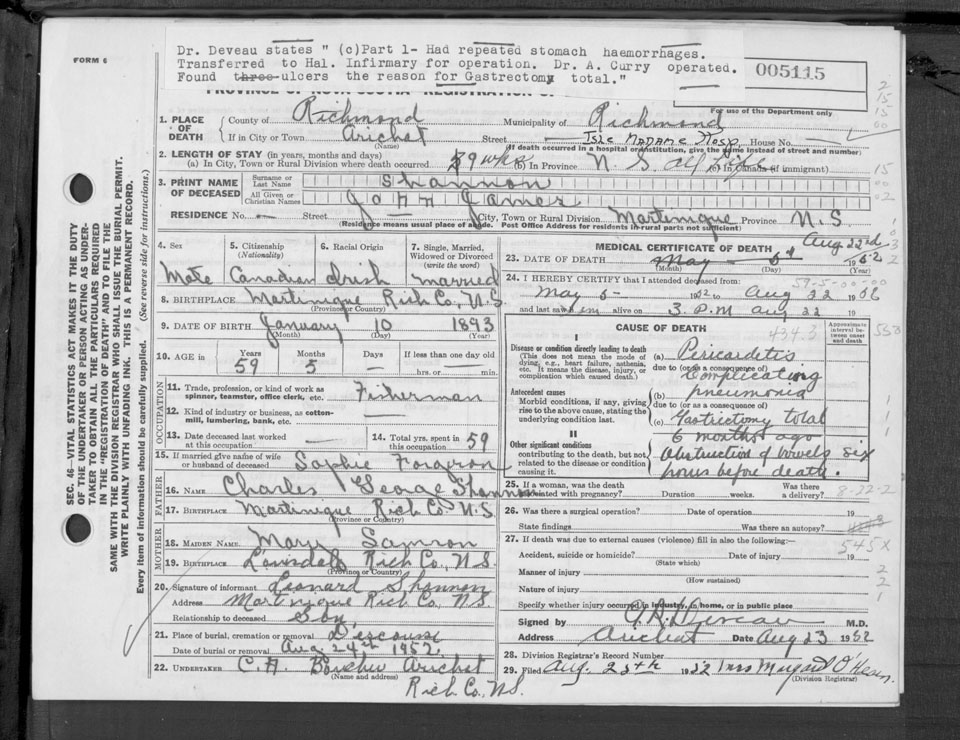 Dr. Deveau states " (c)Part 1- Had repeated stomach haemorrhages.
Transferred to Hal. Infirmary for operation. Dr. A. Curry operated.
Found three ulcers the reason for Gastrectomy total."
FORM 6
005115
For use of the Department only
1. PLACE OF DEATH
County of Richmond Municipality of Richmond
If in City or Town Arichat (Name) Street Isle Madame Hosp. House No.
(If death occurred in a hospital or institution, give the name instead of street and number)
2. LENGTH OF STAY (in years, months and days)
(a) In City, Town or Rural Division where death occurred 9 wks (b) In Province N S all life (c) In Canada (if immigrant)
3. PRINT NAME OF DECEASED
Surname or Last Name Shannon
All Given or Christian Names John James
RESIDENCE No. — Street City, Town or Rural Division Martinique Province N.S
(Residence means usual place of abode. Post Office Address for residents in rural parts not sufficient)
4. Sex Male
5. Citizenship (Nationality) Canadian
6. Racial Origin Irish
7. Single, Married, Widowed or Divorced (write the word) married
8. BIRTHPLACE Martinique Rich Co, N.S
(Province or Country)
9. DATE OF BIRTH January 10 1893
(Month) (Day) (Year)
10. AGE in Years 59 Months 5 Days — If less than one day old
hrs. or min.
OCCUPATION
11. Trade, profession, or kind of work as spinner, teamster, office clerk, etc. Fisherman
12. Kind of industry or business, as cotton-mill, lumbering, bank, etc. —
13. Date deceased last worked at this occupation —
14. Total yrs. spent in this occupation 59
15. If married give name of wife or husband of deceased Sophie Forgeron
FATHER
16. NAME Charles George Shannon
17. BIRTHPLACE Martinique Rich Co. N.S
(Province or Country)
MOTHER
18. MAIDEN NAME Mary Samson
19. BIRTHPLACE Louisdale Rich Co, N.S.
(Province or Country)
20. Signature of informant Leonard Shannon
Address Martinique Rich Co, N.S
Relationship to deceased Son
21. Place of burial, cremation or removal Descousse
Date of burial or removal Aug 24th 1952
22. UNDERTAKER C. A Boucher Arichat
(Name and address)
Rich Co, N.S.
MEDICAL CERTIFICATE OF DEATH
Aug 22nd
23. DATE OF DEATH May 1952
(Month) (Day) (Year)
24. I HEREBY CERTIFY that I attended deceased from:
59-5-00-00
May 5- 1952 to Aug 22 1952
and last saw him alive on 3. P.M Aug 22 19
CAUSE OF DEATH
434.3
Approximate interval between onset and death
I
Disease or condition directly leading to death
(This does not mean the mode of dying, e.g., heart failure, asthenia, etc. It means the disease, injury, or complication which caused death.)
(a) Pericarditis
due to (or as a consequence of)
Complicating
(b) pneumonia
Antecedent causes
Morbid conditions, if any, giving rise to the above cause, stating the underlying condition last.
due to (or as a consequence of)
(c) Gastrictomy total
6 months ago
II
Other significant conditions
contributing to the death, but not related to the disease or condition causing it.
Obstruction of bowels six
hours before death.
25. If a woman, was the death associated with pregnancy? Duration weeks. Was there a delivery?
8-22-2
26. Was there a surgical operation? Date of operation 19
State findings Was there an autopsy?
545X
27. If death was due to external causes (violence) fill in also the following:—
Accident, suicide or homicide? Date of injury 19
(State which)
Manner of injury
(How sustained)
Nature of injury
Specify whether injury occurred in industry, in home, or in public place
Signed by Deveau M.D.
Address Arichat Date Aug 23 1952
28. Division Registrar's Record Number
29. Filed Aug. 25th 1952 Mrs Margaret O'Hearn.
(Division Registrar)
SEC. 46—VITAL STATISTICS ACT MAKES IT THE DUTY
OF THE UNDERTAKER OR PERSON ACTING AS UNDER-
TAKER TO OBTAIN ALL THE PARTICULARS REQUIRED
IN THE "REGISTRATION OF DEATH" AND TO FILE THE
SAME WITH THE DIVISION REGISTRAR WHO SHALL ISSUE THE BURIAL PERMIT.
WRITE PLAINLY WITH UNFADING INK. THIS IS A PERMANENT RECORD.
Every item of information should be carefully supplied. (See reverse side for instructions.)